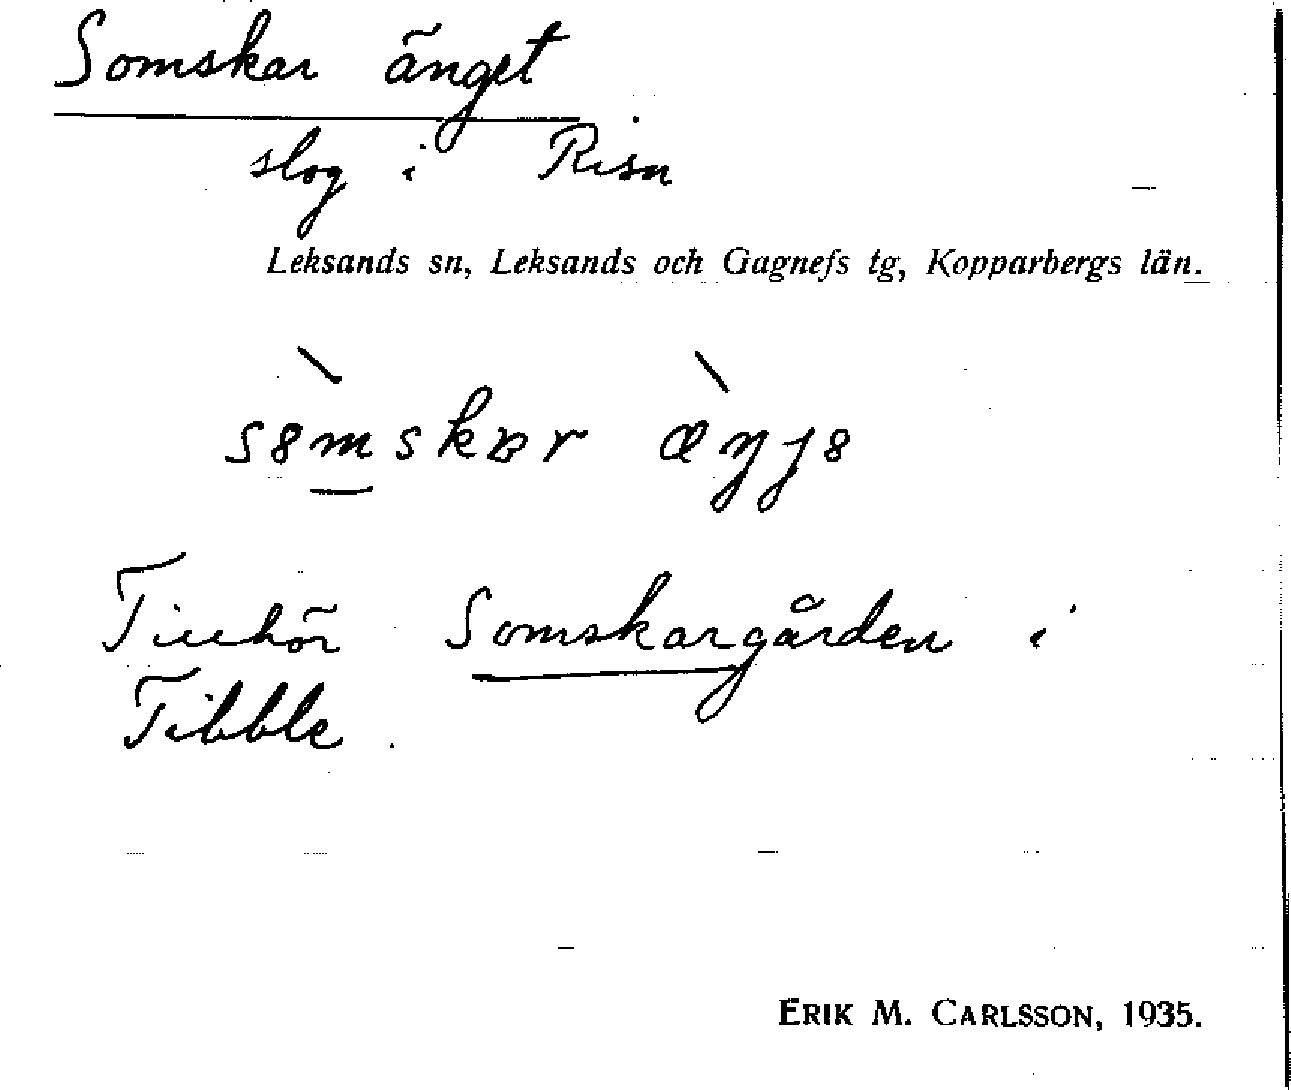 Somskar änget
slog i Risn
Leksands sn, Leksands och Gagnefs tg, Kopparbergs län.
s8mskɐr æŋj8
Tillhör Somskargården i
Tibble.
ERIK M. CARLSSON, 1935.